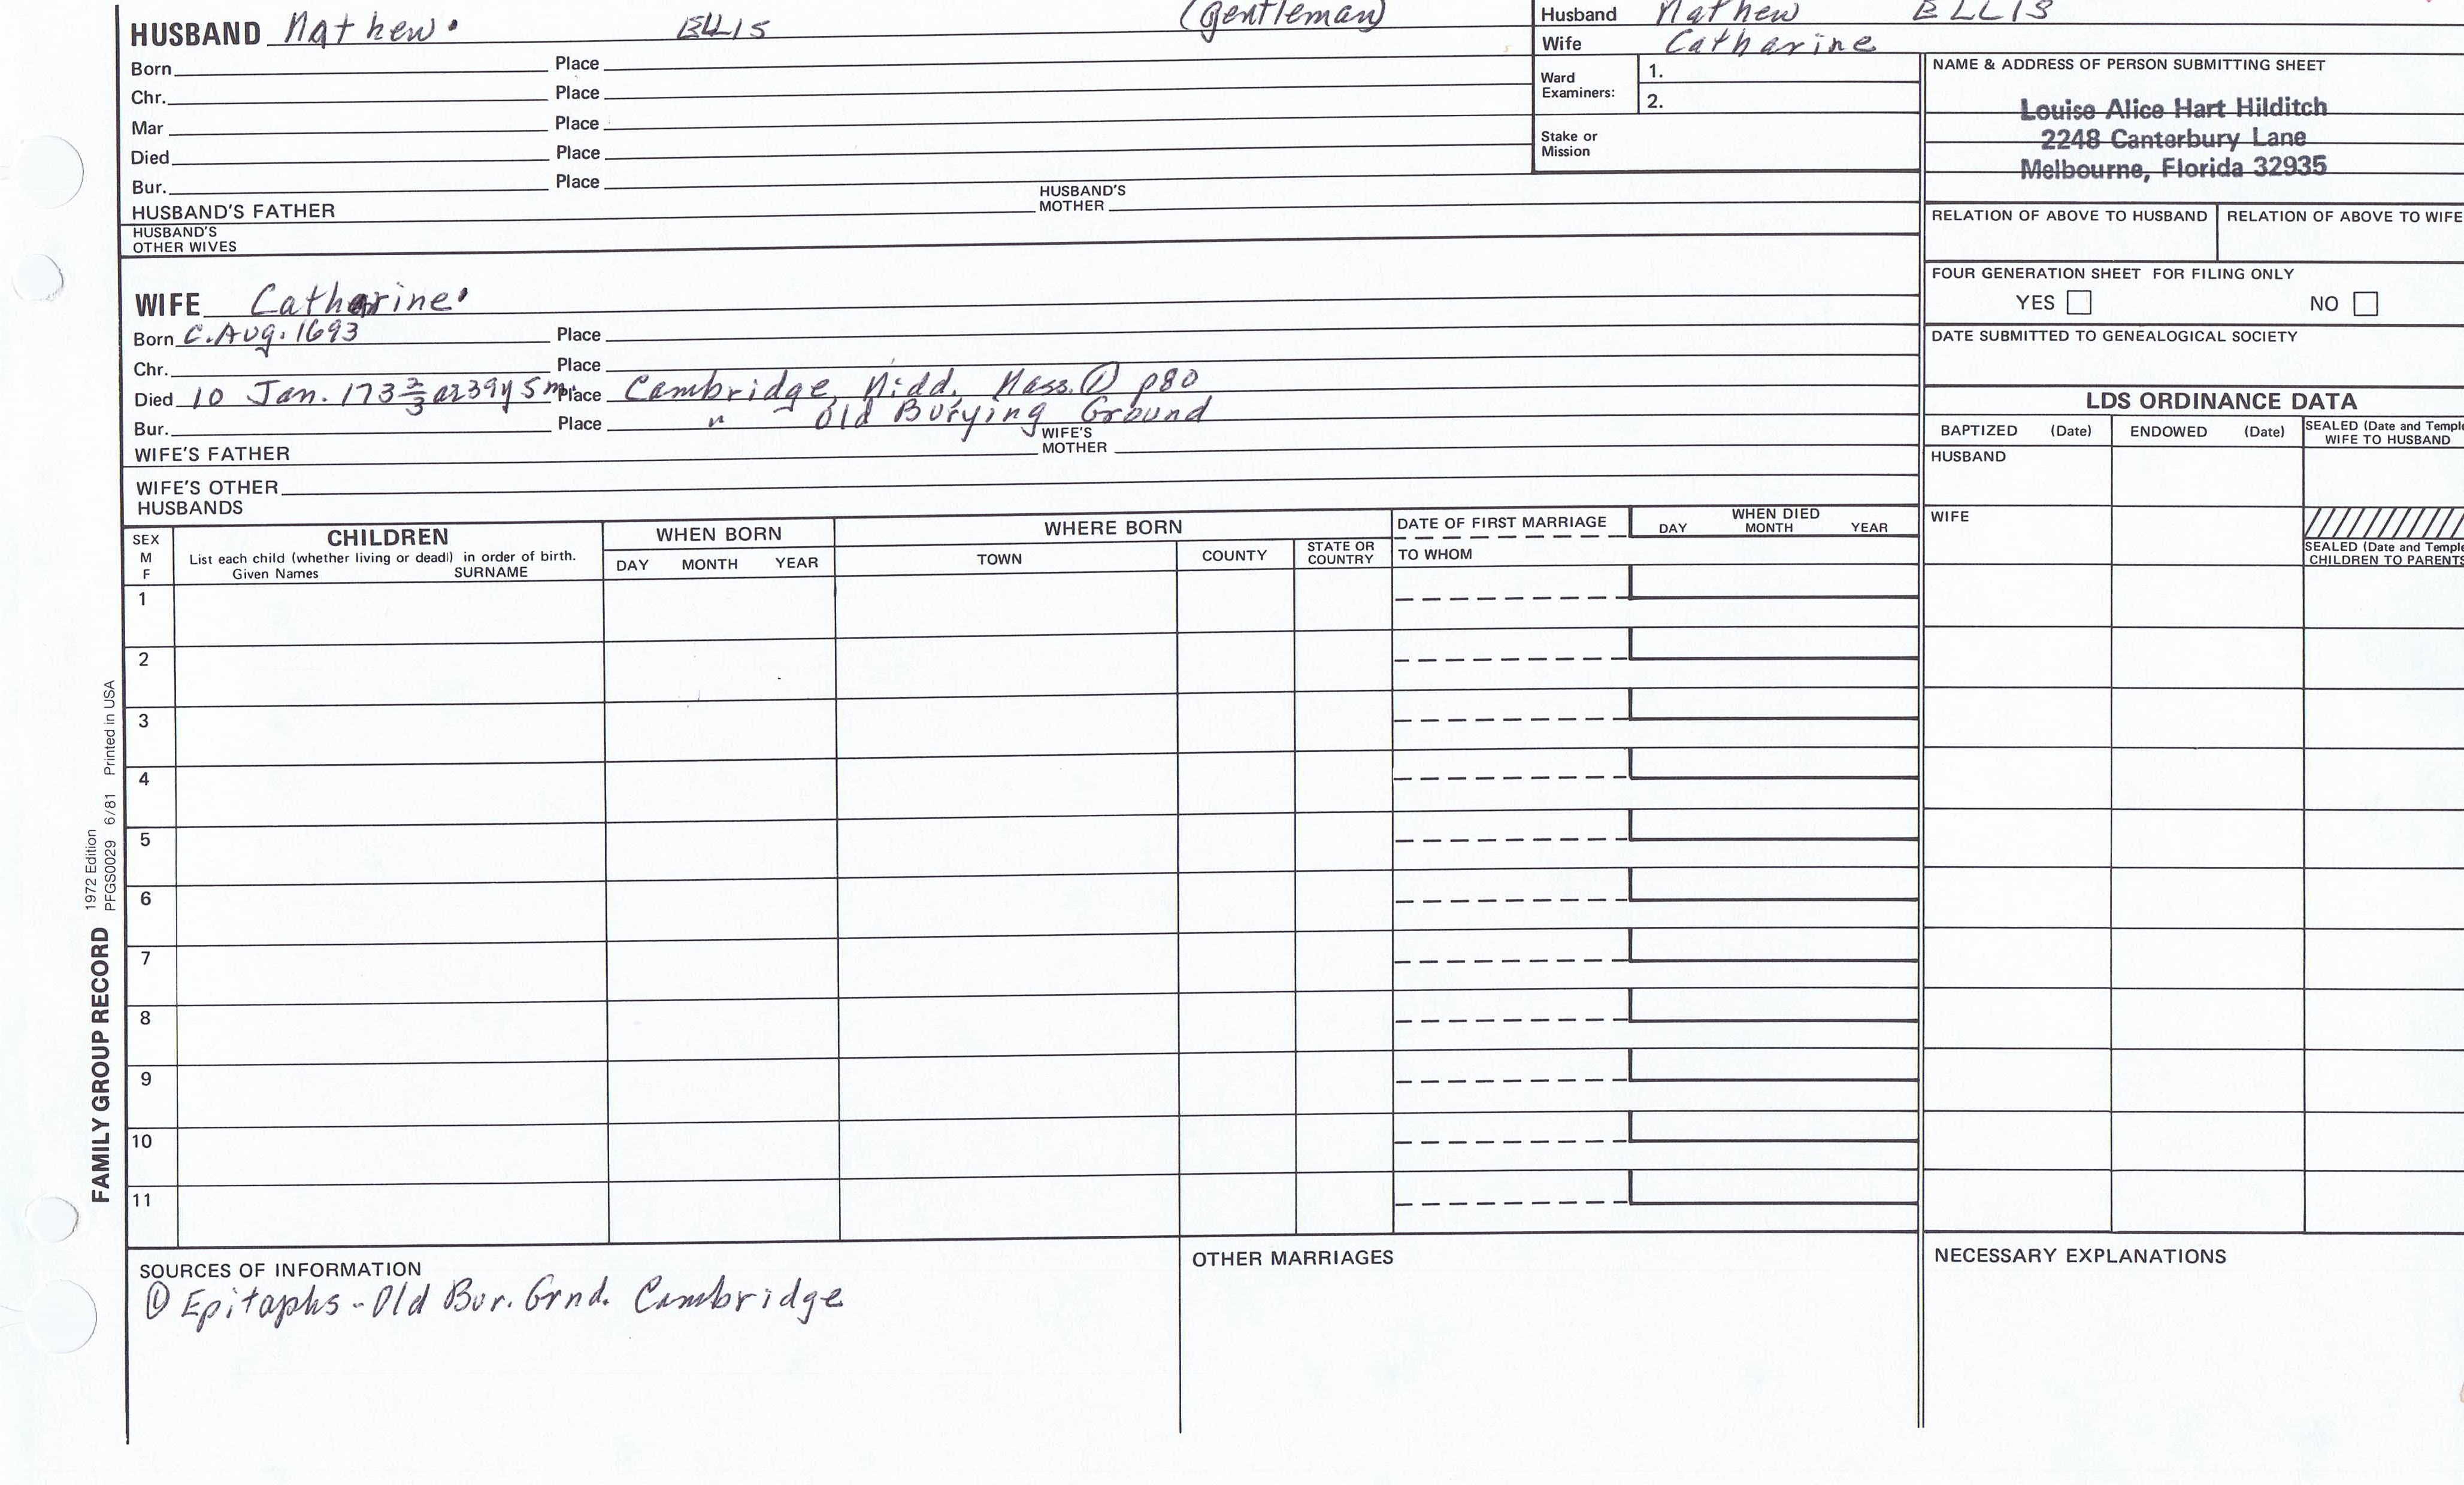 HUSBAND Mathew. ELLIS (gentleman)
Born Place
Chr. Place
Mar Place
Died Place
Bur. Place
HUSBAND'S FATHER HUSBAND'S MOTHER
HUSBAND'S OTHER WIVES
WIFE Catharine.
Born C. Aug. 1693 Place
Chr. Place
Died 10 Jan. 173 2/3 ae 39y 5m. Place Cambridge, Midd. Mass. ① p80
Bur. Place " - Old Burying Ground
WIFE'S FATHER WIFE'S MOTHER
WIFE'S OTHER HUSBANDS
Husband Mathew ELLIS
Wife Catharine
Ward Examiners: 1.
2.
Stake or Mission
NAME & ADDRESS OF PERSON SUBMITTING SHEET
Louise Alice Hart Hilditch
2248 Canterbury Lane
Melbourne, Florida 32935
RELATION OF ABOVE TO HUSBAND RELATION OF ABOVE TO WIFE
FOUR GENERATION SHEET FOR FILING ONLY
YES NO
DATE SUBMITTED TO GENEALOGICAL SOCIETY
LDS ORDINANCE DATA
BAPTIZED (Date) ENDOWED (Date) SEALED (Date and Temple
WIFE TO HUSBAND
HUSBAND
WIFE
SEALED (Date and Temple
CHILDREN TO PARENTS
SEX M F
CHILDREN
List each child (whether living or dead) in order of birth.
Given Names SURNAME
WHEN BORN
DAY MONTH YEAR
WHERE BORN
TOWN COUNTY STATE OR COUNTRY
DATE OF FIRST MARRIAGE
TO WHOM
WHEN DIED
DAY MONTH YEAR
1
2
3
4
5
6
7
8
9
10
11
SOURCES OF INFORMATION
① Epitaphs - Old Bur. Grnd. Cambridge
OTHER MARRIAGES
NECESSARY EXPLANATIONS
FAMILY GROUP RECORD
1972 Edition
PFGS0029 6/81 Printed in USA